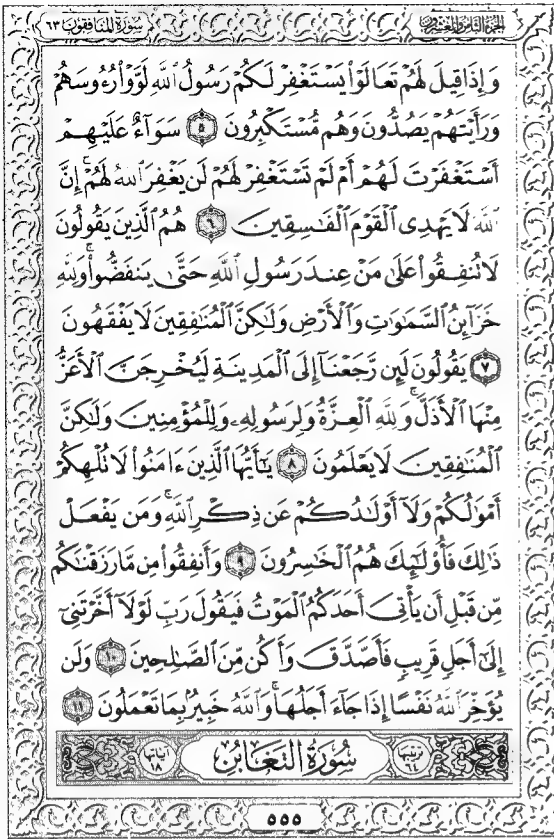 الجزء الثامن والعشرون سورة المنافقون ٦٣
وَإِذَا قِيلَ لَهُمْ تَعَالَوْا۟ يَسْتَغْفِرْ لَكُمْ رَسُولُ ٱللَّهِ لَوَّوْا۟ رُءُوسَهُمْ
وَرَأَيْتَهُمْ يَصُدُّونَ وَهُم مُّسْتَكْبِرُونَ ٥ سَوَآءٌ عَلَيْهِمْ
أَسْتَغْفَرْتَ لَهُمْ أَمْ لَمْ تَسْتَغْفِرْ لَهُمْ لَن يَغْفِرَ ٱللَّهُ لَهُمْ ۚ إِنَّ
ٱللَّهَ لَا يَهْدِى ٱلْقَوْمَ ٱلْفَٰسِقِينَ ٦ هُمُ ٱلَّذِينَ يَقُولُونَ
لَا تُنفِقُوا۟ عَلَىٰ مَنْ عِندَ رَسُولِ ٱللَّهِ حَتَّىٰ يَنفَضُّوا۟ ۗ وَلِلَّهِ
خَزَآئِنُ ٱلسَّمَٰوَٰتِ وَٱلْأَرْضِ وَلَٰكِنَّ ٱلْمُنَٰفِقِينَ لَا يَفْقَهُونَ
٧ يَقُولُونَ لَئِن رَّجَعْنَآ إِلَى ٱلْمَدِينَةِ لَيُخْرِجَنَّ ٱلْأَعَزُّ
مِنْهَا ٱلْأَذَلَّ ۚ وَلِلَّهِ ٱلْعِزَّةُ وَلِرَسُولِهِۦ وَلِلْمُؤْمِنِينَ وَلَٰكِنَّ
ٱلْمُنَٰفِقِينَ لَا يَعْلَمُونَ ٨ يَٰٓأَيُّهَا ٱلَّذِينَ ءَامَنُوا۟ لَا تُلْهِكُمْ
أَمْوَٰلُكُمْ وَلَآ أَوْلَٰدُكُمْ عَن ذِكْرِ ٱللَّهِ ۚ وَمَن يَفْعَلْ
ذَٰلِكَ فَأُو۟لَٰٓئِكَ هُمُ ٱلْخَٰسِرُونَ ٩ وَأَنفِقُوا۟ مِن مَّا رَزَقْنَٰكُم
مِّن قَبْلِ أَن يَأْتِىَ أَحَدَكُمُ ٱلْمَوْتُ فَيَقُولَ رَبِّ لَوْلَآ أَخَّرْتَنِىٓ
إِلَىٰٓ أَجَلٍ قَرِيبٍ فَأَصَّدَّقَ وَأَكُن مِّنَ ٱلصَّٰلِحِينَ ١٠ وَلَن
يُؤَخِّرَ ٱللَّهُ نَفْسًا إِذَا جَآءَ أَجَلُهَا ۚ وَٱللَّهُ خَبِيرٌۢ بِمَا تَعْمَلُونَ ١١
ترتيبها ٦٤ سُورَةُ التَّغَابُنِ آياتها ١٨
٥٥٥